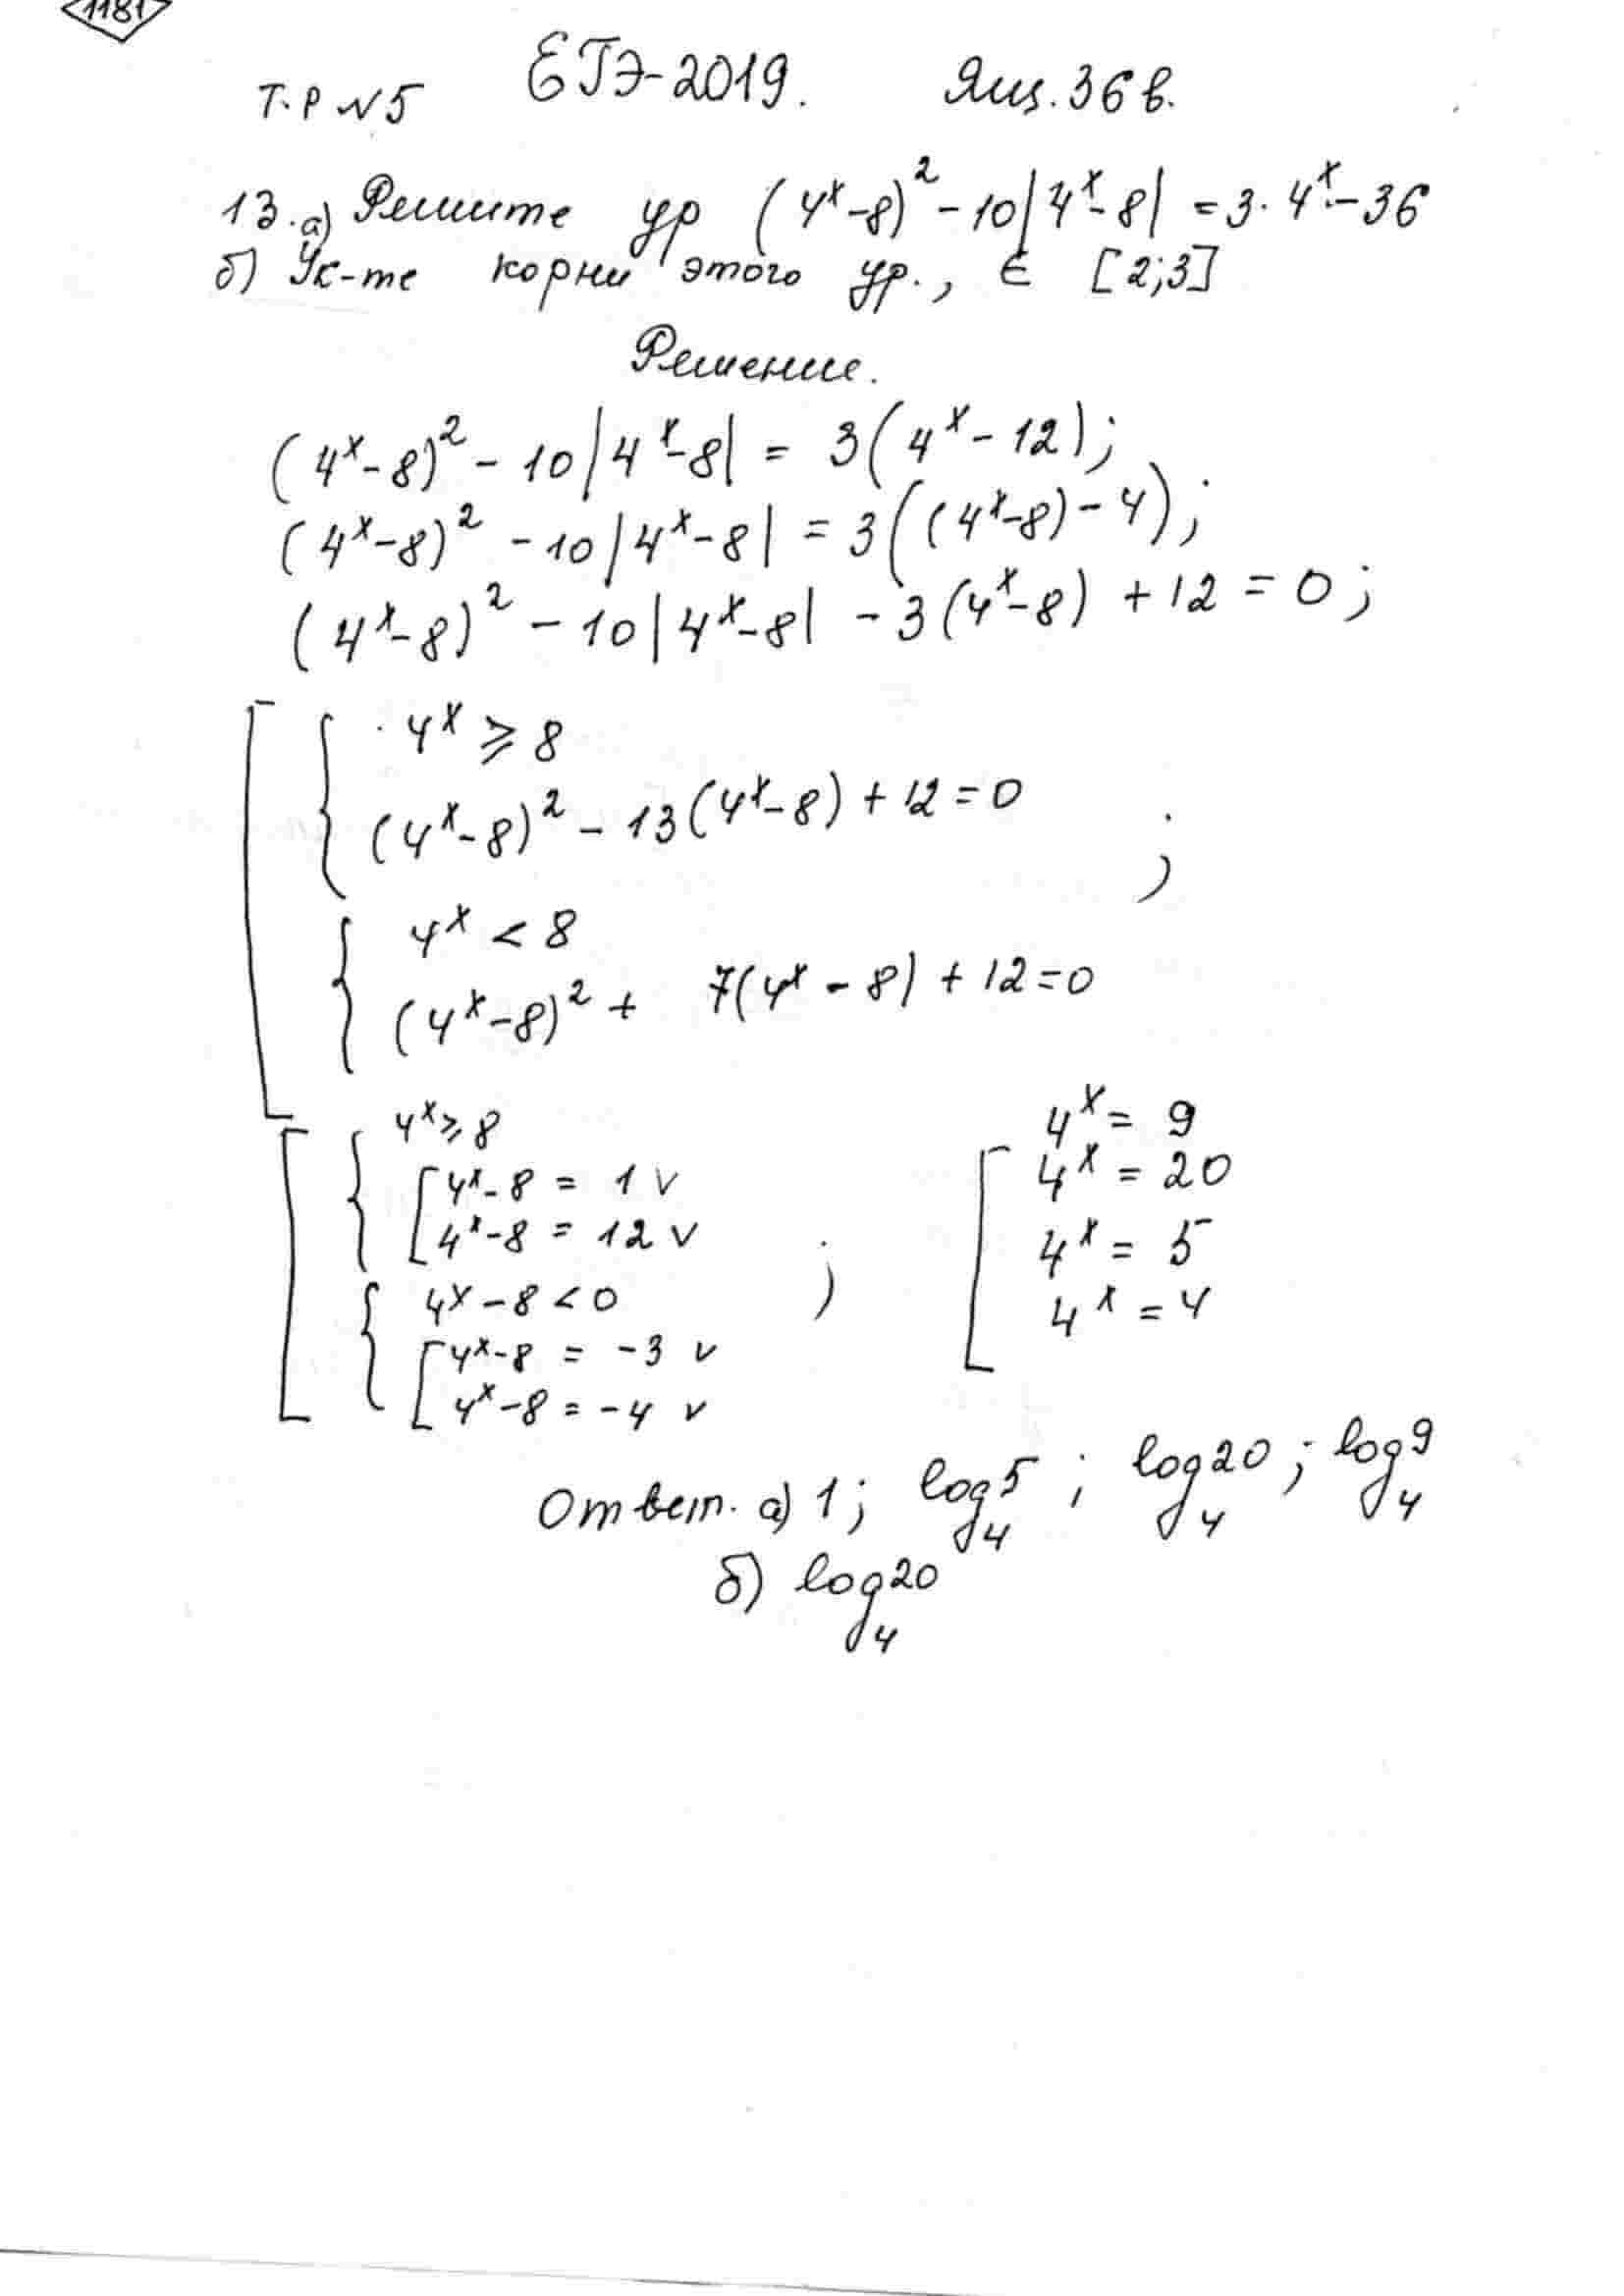 1181
Т.Р №5 ЕГЭ-2019. Ящ. 36 в.
13. а) Решите ур (4^x-8)^2 - 10|4^x-8| = 3·4^x-36
б) Ук-те корни этого ур., ∈ [2;3]
Решение.
(4^x-8)^2 - 10|4^x-8| = 3(4^x-12);
(4^x-8)^2 - 10|4^x-8| = 3((4^x-8)-4);
(4^x-8)^2 - 10|4^x-8| - 3(4^x-8) + 12 = 0;
4^x ⩾ 8
(4^x-8)^2 - 13(4^x-8) + 12 = 0
;
4^x < 8
(4^x-8)^2 + 7(4^x-8) + 12 = 0
4^x ⩾ 8
4^x-8 = 1 v
4^x-8 = 12 v
4^x-8 < 0
4^x-8 = -3 v
4^x-8 = -4 v
;
4^x = 9
4^x = 20
4^x = 5
4^x = 4
Ответ. а) 1; log_4 5; log_4 20; log_4 9
б) log_4 20